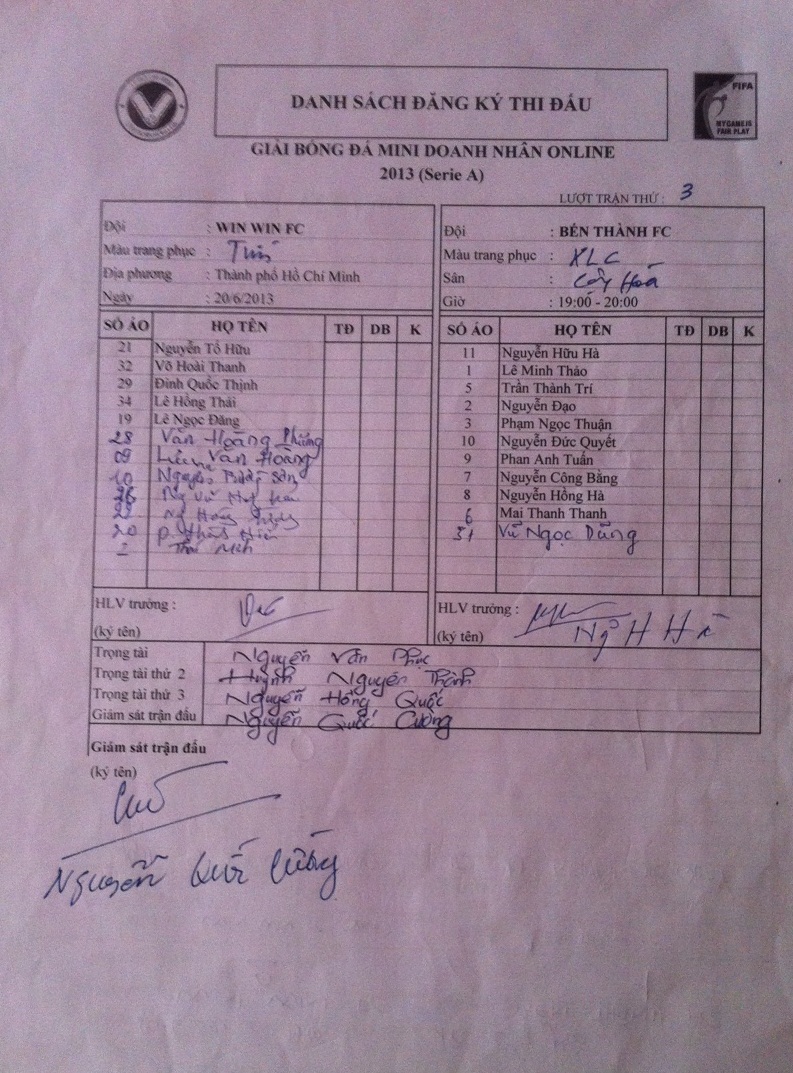 DANH SÁCH ĐĂNG KÝ THI ĐẤU
FIFA
MY GAME IS
FAIR PLAY
GIẢI BÓNG ĐÁ MINI DOANH NHÂN ONLINE
2013 (Serie A)
LƯỢT TRẬN THỨ : 3
Đội : WIN WIN FC
Màu trang phục :
Địa phương : Thành phố Hồ Chí Minh
Ngày : 20/6/2013
SỐ ÁO HỌ TÊN TĐ DB K
21 Nguyễn Tố Hữu
32 Võ Hoài Thanh
29 Đinh Quốc Thịnh
34 Lê Hồng Thái
19 Lê Ngọc Đăng
28 Văn Hoàng
09 Văn Hoàng
10 Nguyễn
26
20
HLV trưởng :
(ký tên)
Đội : BẾN THÀNH FC
Màu trang phục : XLC
Sân : Cây
Giờ : 19:00 - 20:00
SỐ ÁO HỌ TÊN TĐ DB K
11 Nguyễn Hữu Hà
1 Lê Minh Thảo
5 Trần Thành Trí
2 Nguyễn Đạo
3 Phạm Ngọc Thuận
10 Nguyễn Đức Quyết
9 Phan Anh Tuấn
7 Nguyễn Công Bằng
8 Nguyễn Hồng Hà
6 Mai Thanh Thanh
31 Vũ Ngọc Dũng
HLV trưởng :
(ký tên) Ng H Hà
Trọng tài Nguyễn Văn Phúc
Trọng tài thứ 2 Huỳnh Nguyễn Thành
Trọng tài thứ 3 Nguyễn Hồng Quốc
Giám sát trận đấu Nguyễn Quốc Cường
Giám sát trận đấu
(ký tên)
Nguyễn Quốc Cường